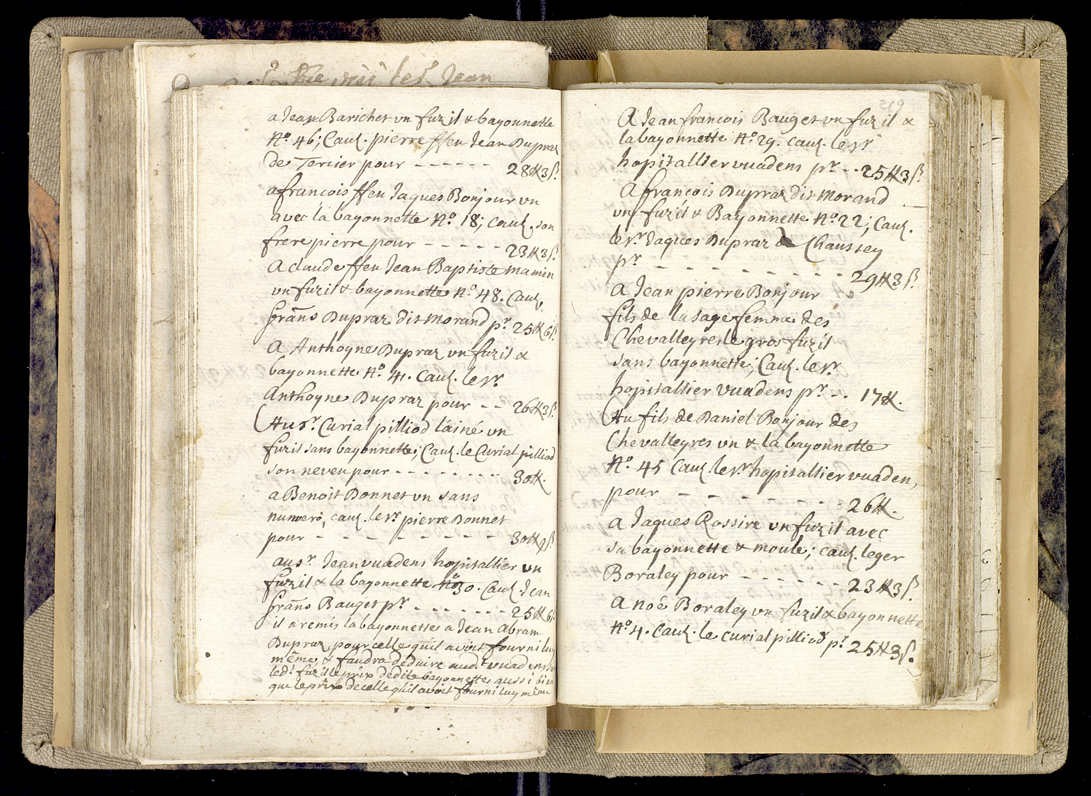 a Jean Barichet vn fuzil & bayonnette
N.º 46; Cauõ. pierre ffeu Jean Dupraz
de Torcier pour - - - - - - 28tt3ß.
a francois ffeu Jaques Bonjour vn
avec la bayonnette N.º 18; cauõ, son
frere pierre pour - - - - - - 23tt3ß.
a claude ffeu Jean Baptiste mamin
vn fuzil & bayonnette N.º 48. Cauõ,
frãns Dupraz dit Morand pr. 25tt6ß
a Anthoyne Dupraz vn fuzil &
bayonnette N.º 41. Cauõ. le sr.
Anthoyne Dupraz pour - - 26tt3ß.
Au sr. Curial pilliod lainé vn
fuzil sans bayonnette; Cauõ. le Curial pilliod
son neveu pour - - - - - - - - 30tt.
a Benoit Bonnet vn sans
numero, cauõ. le sr. pierre Bonnet
pour - - - - - - - - 30tt9ß
au sr. Jean vuadens hopitallier vn
fuzil & la bayonnette N.º 30. Cauõ. Jean
frãns Bauget pr. - - - - - - - 25tt6
il a remis la bayonnette a Jean Abram
Dupraz pour celle quil avoit fourni luy
même & faudra deduire audt. vuadens
ledt. fuzil le prix de dite bayonnettes aussi bien
que le prix de celle quil avoit fourni luy même
219
A Jean francois Bauget vn fuzil &
la bayonnette N.º 29. cauõ. le sr
hopitallier vuadens pr. - - 25tt3ß.
A francois Dupraz dit Morand
vn fuzil & Bayonnette N.º 22; Cauõ.
le sr. Jaques Dupraz de Chaussey
pr. - - - - - - - - - 29tt3ß.
a Jean pierre Bonjour
fils de la sage femme des
Chevalleyres le gros fuzil
sans bayonnette; Cauõ. le sr.
hopitallier vuadens pr. - - 17tt.
Au fils de Daniel Bonjour des
Chevalleyres vn & la bayonnette
N.º 45 Cauõ le sr. hopitallier vuadens,
pour - - - - - - - - 26tt.
a Jaques Rossire vn fuzil avec
sa bayonnette & moule; cauõ. leger
Boraley pour - - - - - - - 23tt3ß.
A noé Boraley vn fuzil & bayonnette
N.º 4. Cauõ. le curial pilliod pr. 25tt3ß.